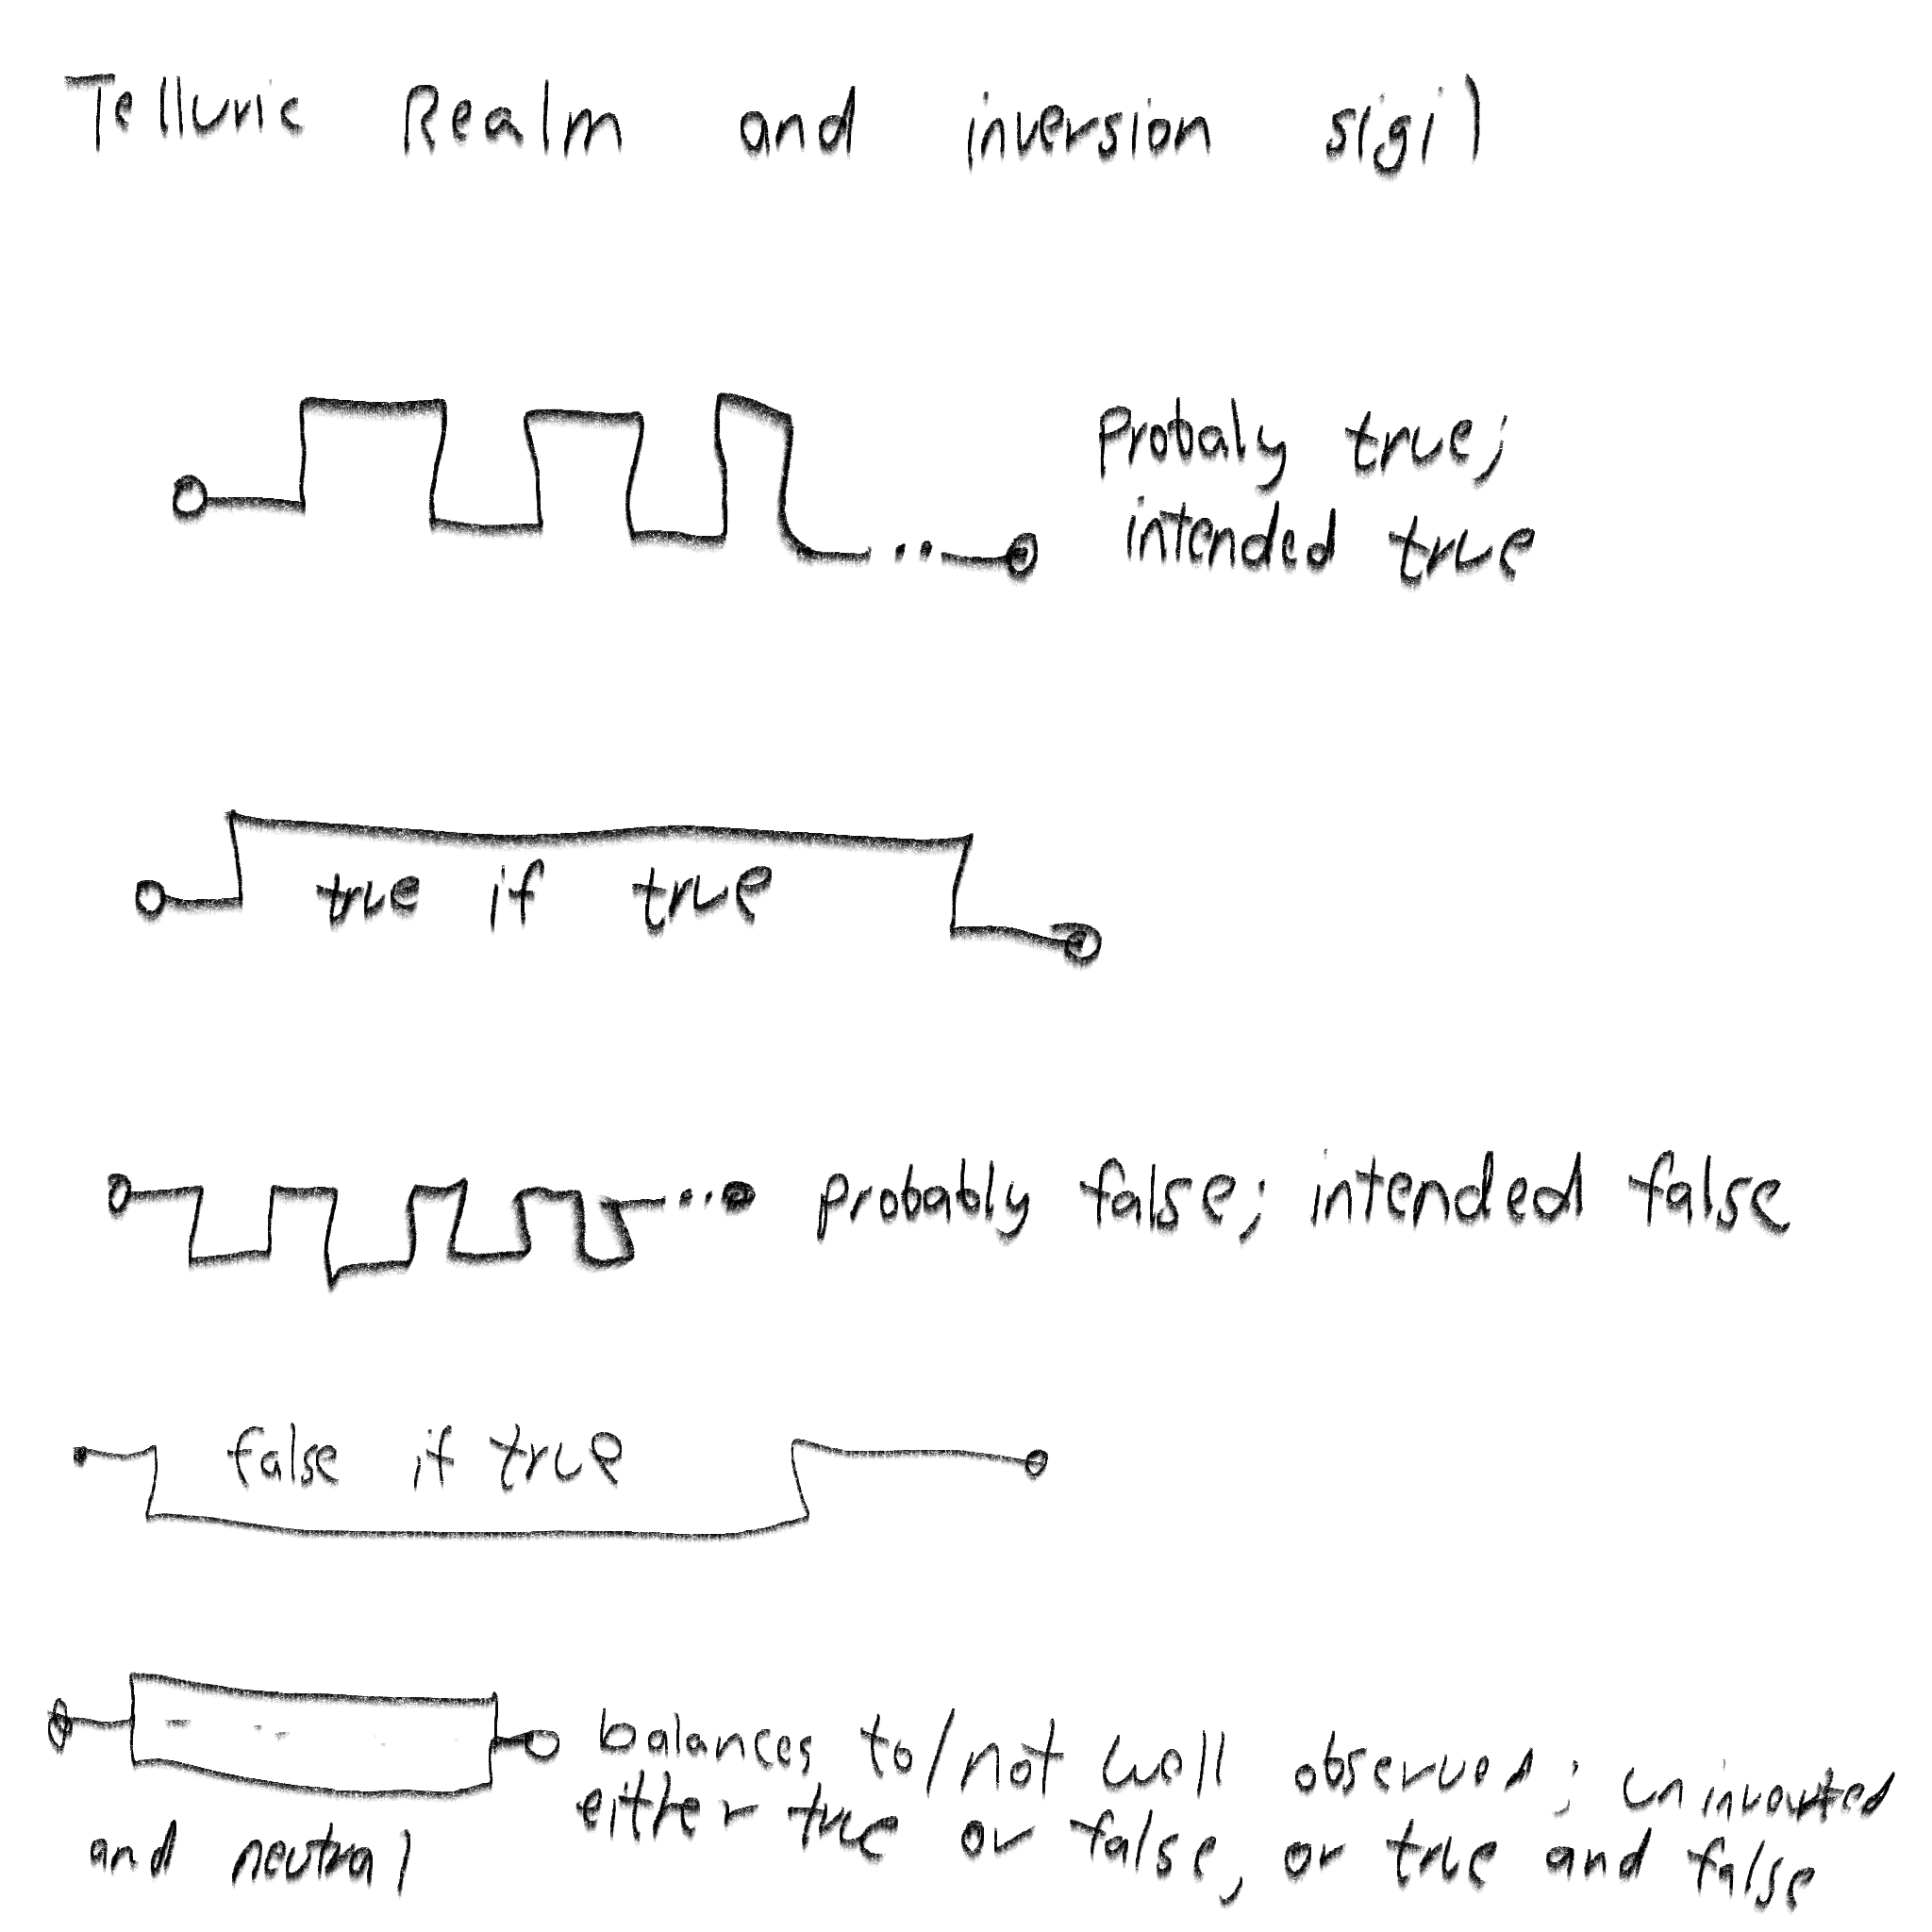 Telluric Realm and inversion sigil
Probaly true;
intended true
true if true
probably false; intended false
false if true
balances to/not well observed; uninverted
either true or false, or true and false
and neutral